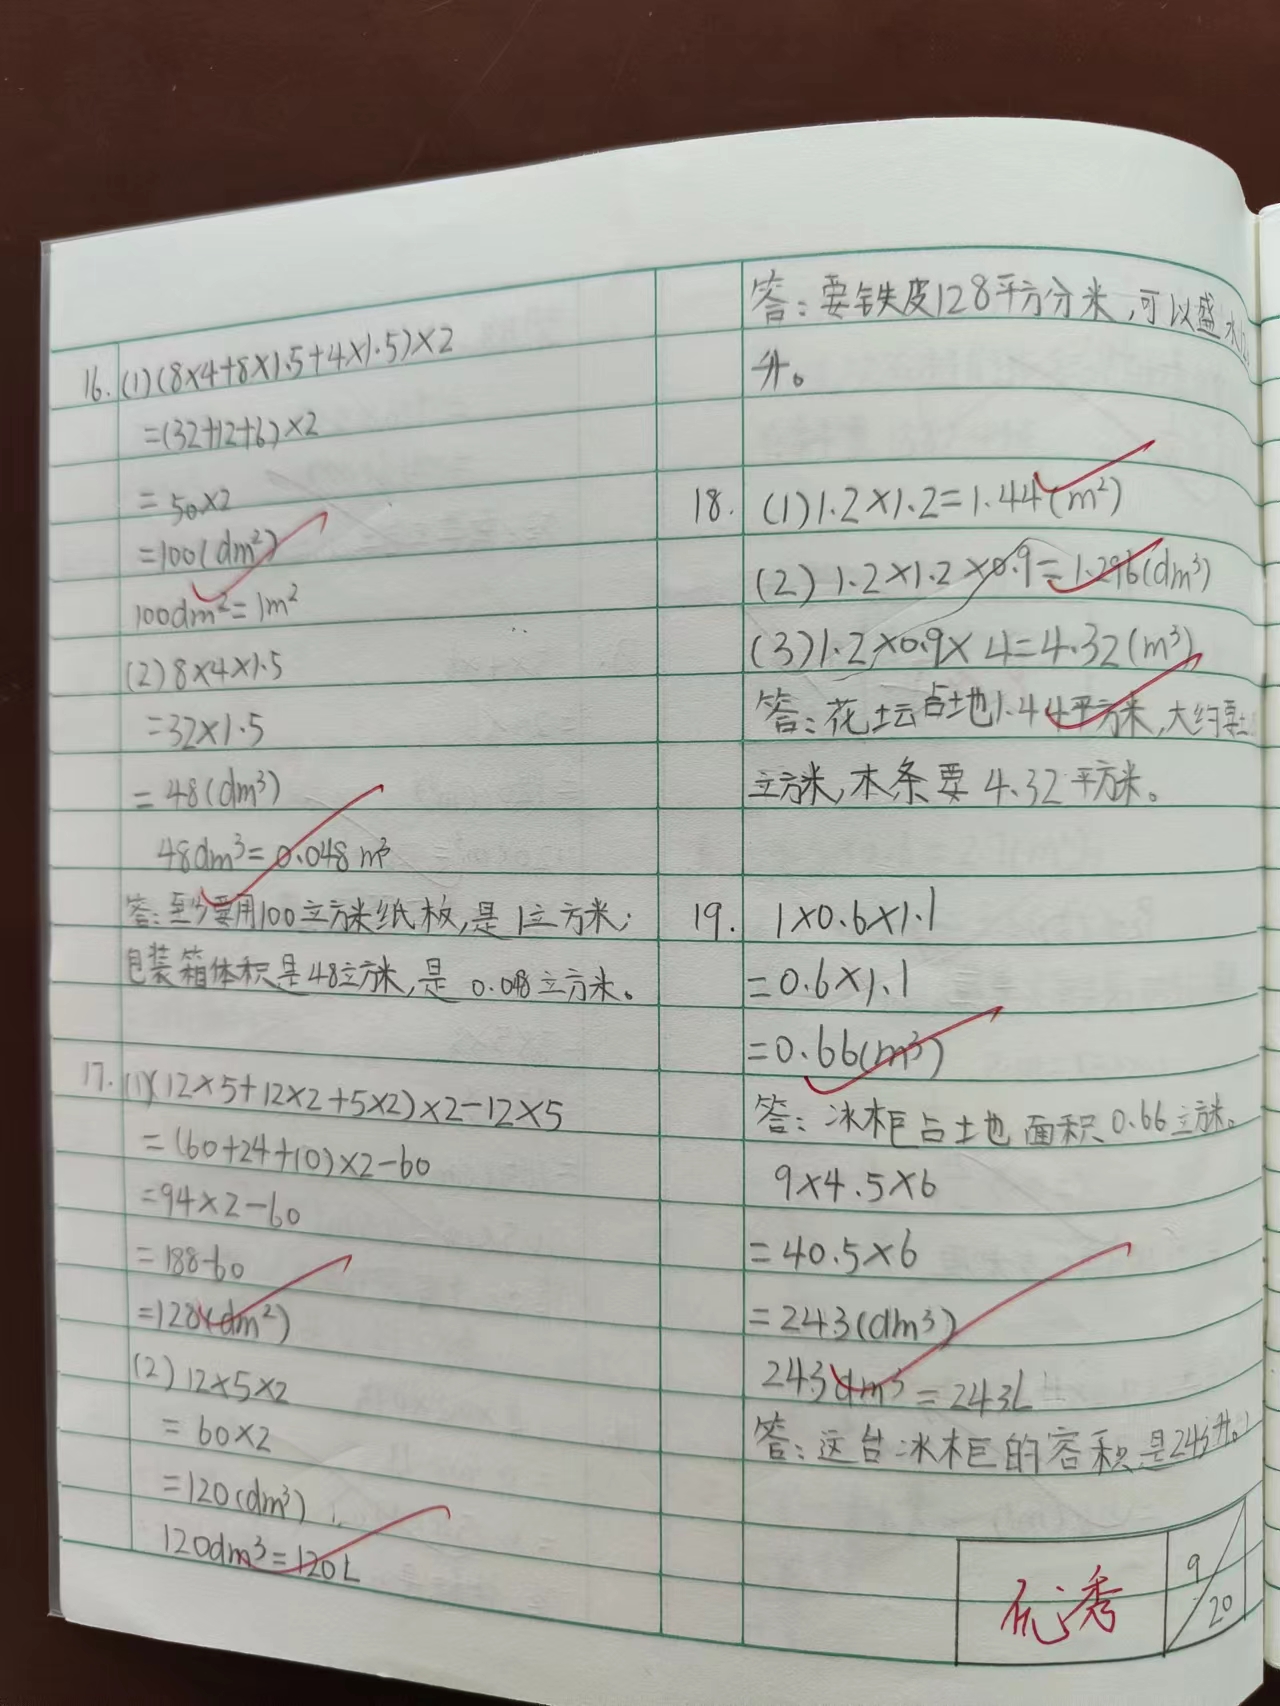 16. (1)(8×4+8×1.5+4×1.5)×2
=(32+12+6)×2
=50×2
=100(dm²)
100dm²=1m²
(2)8×4×1.5
=32×1.5
=48(dm³)
48dm³=0.048m³
答:至少要用100立方米纸板,是1立方米;
包装箱体积是48立方米,是0.048立方米。
17. (1)(12×5+12×2+5×2)×2-12×5
=(60+24+10)×2-60
=94×2-60
=188-60
=128(dm²)
(2)12×5×2
=60×2
=120(dm³)
120dm³=120L
答:要铁皮128平方分米,可以盛水
升。
18. (1)1.2×1.2=1.44(m²)
(2)1.2×1.2×0.9=1.296(dm³)
(3)1.2×0.9×4=4.32(m³)
答:花坛占地1.44平方米,大约要土
立方米,木条要4.32平方米。
19. 1×0.6×1.1
=0.6×1.1
=0.66(m³)
答:冰柜占土地面积0.66立方米。
9×4.5×6
=40.5×6
=243(dm³)
243dm³=243L
答:这台冰柜的容积是243升。
优秀 9/20